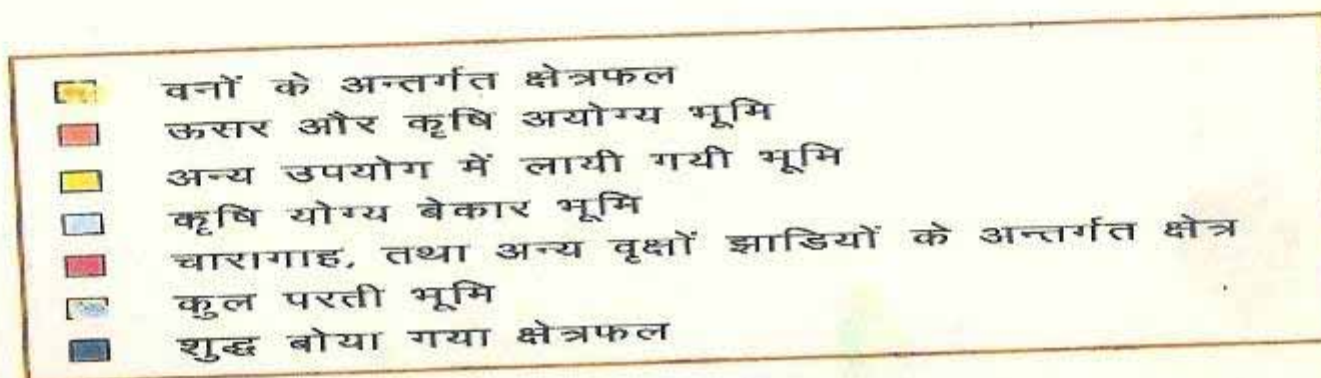 वनों के अन्तर्गत क्षेत्रफल
ऊसर और कृषि अयोग्य भूमि
अन्य उपयोग में लायी गयी भूमि
कृषि योग्य बेकार भूमि
चारागाह, तथा अन्य वृक्षों झाडियों के अन्तर्गत क्षेत्र
कुल परती भूमि
शुद्ध बोया गया क्षेत्रफल